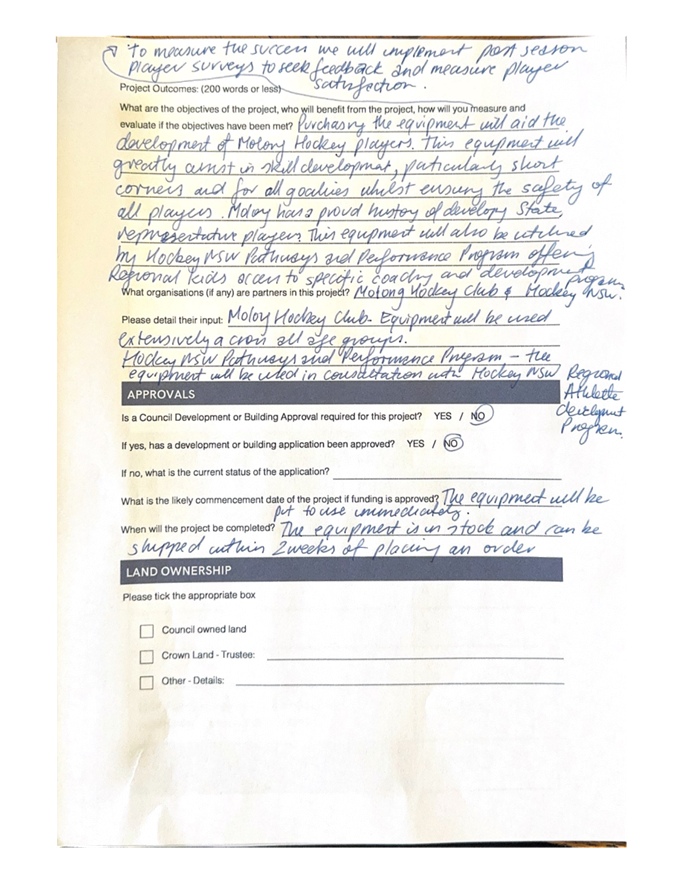 To measure the success we will implement post season
player surveys to seek feedback and measure player
satisfaction.
Project Outcomes: (200 words or less)
What are the objectives of the project, who will benefit from the project, how will you measure and
evaluate if the objectives have been met? Purchasing the equipment will aid the
development of Molong Hockey players. This equipment will
greatly assist in skill development, particularly short
corners and for all goalies whilst ensuring the safety of
all players. Molong has a proud history of developing State
representative players. This equipment will also be utilised
by Hockey NSW Pathways and Performance Program offering
Regional kids access to specific coaching and development
program
What organisations (if any) are partners in this project? Molong Hockey Club & Hockey NSW.
Please detail their input: Molong Hockey Club - Equipment will be used
extensively across all age groups.
Hockey NSW Pathways and Performance Program - the
equipment will be used in consultation with Hockey NSW Regional
Athlete
development
Program.
APPROVALS
Is a Council Development or Building Approval required for this project? YES / NO
If yes, has a development or building application been approved? YES / NO
If no, what is the current status of the application?
What is the likely commencement date of the project if funding is approved? The equipment will be
put to use immediately.
When will the project be completed? The equipment is in stock and can be
shipped within 2 weeks of placing an order
LAND OWNERSHIP
Please tick the appropriate box
Council owned land
Crown Land - Trustee:
Other - Details: